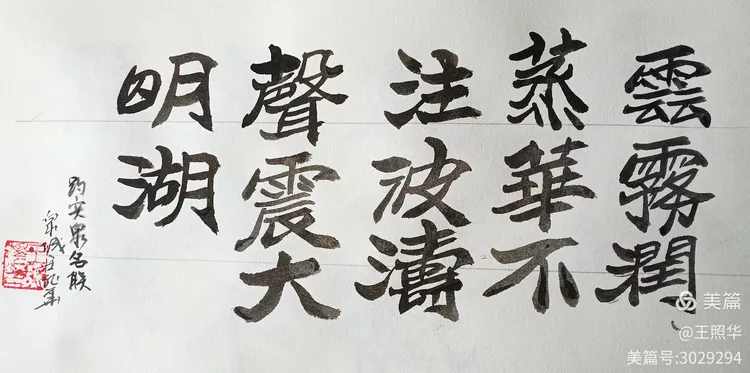 雲霧潤
蒸華不
注波濤
聲震大
明湖
趵突泉名联
泉城王照华
美篇
@王照华
美篇号:3029294